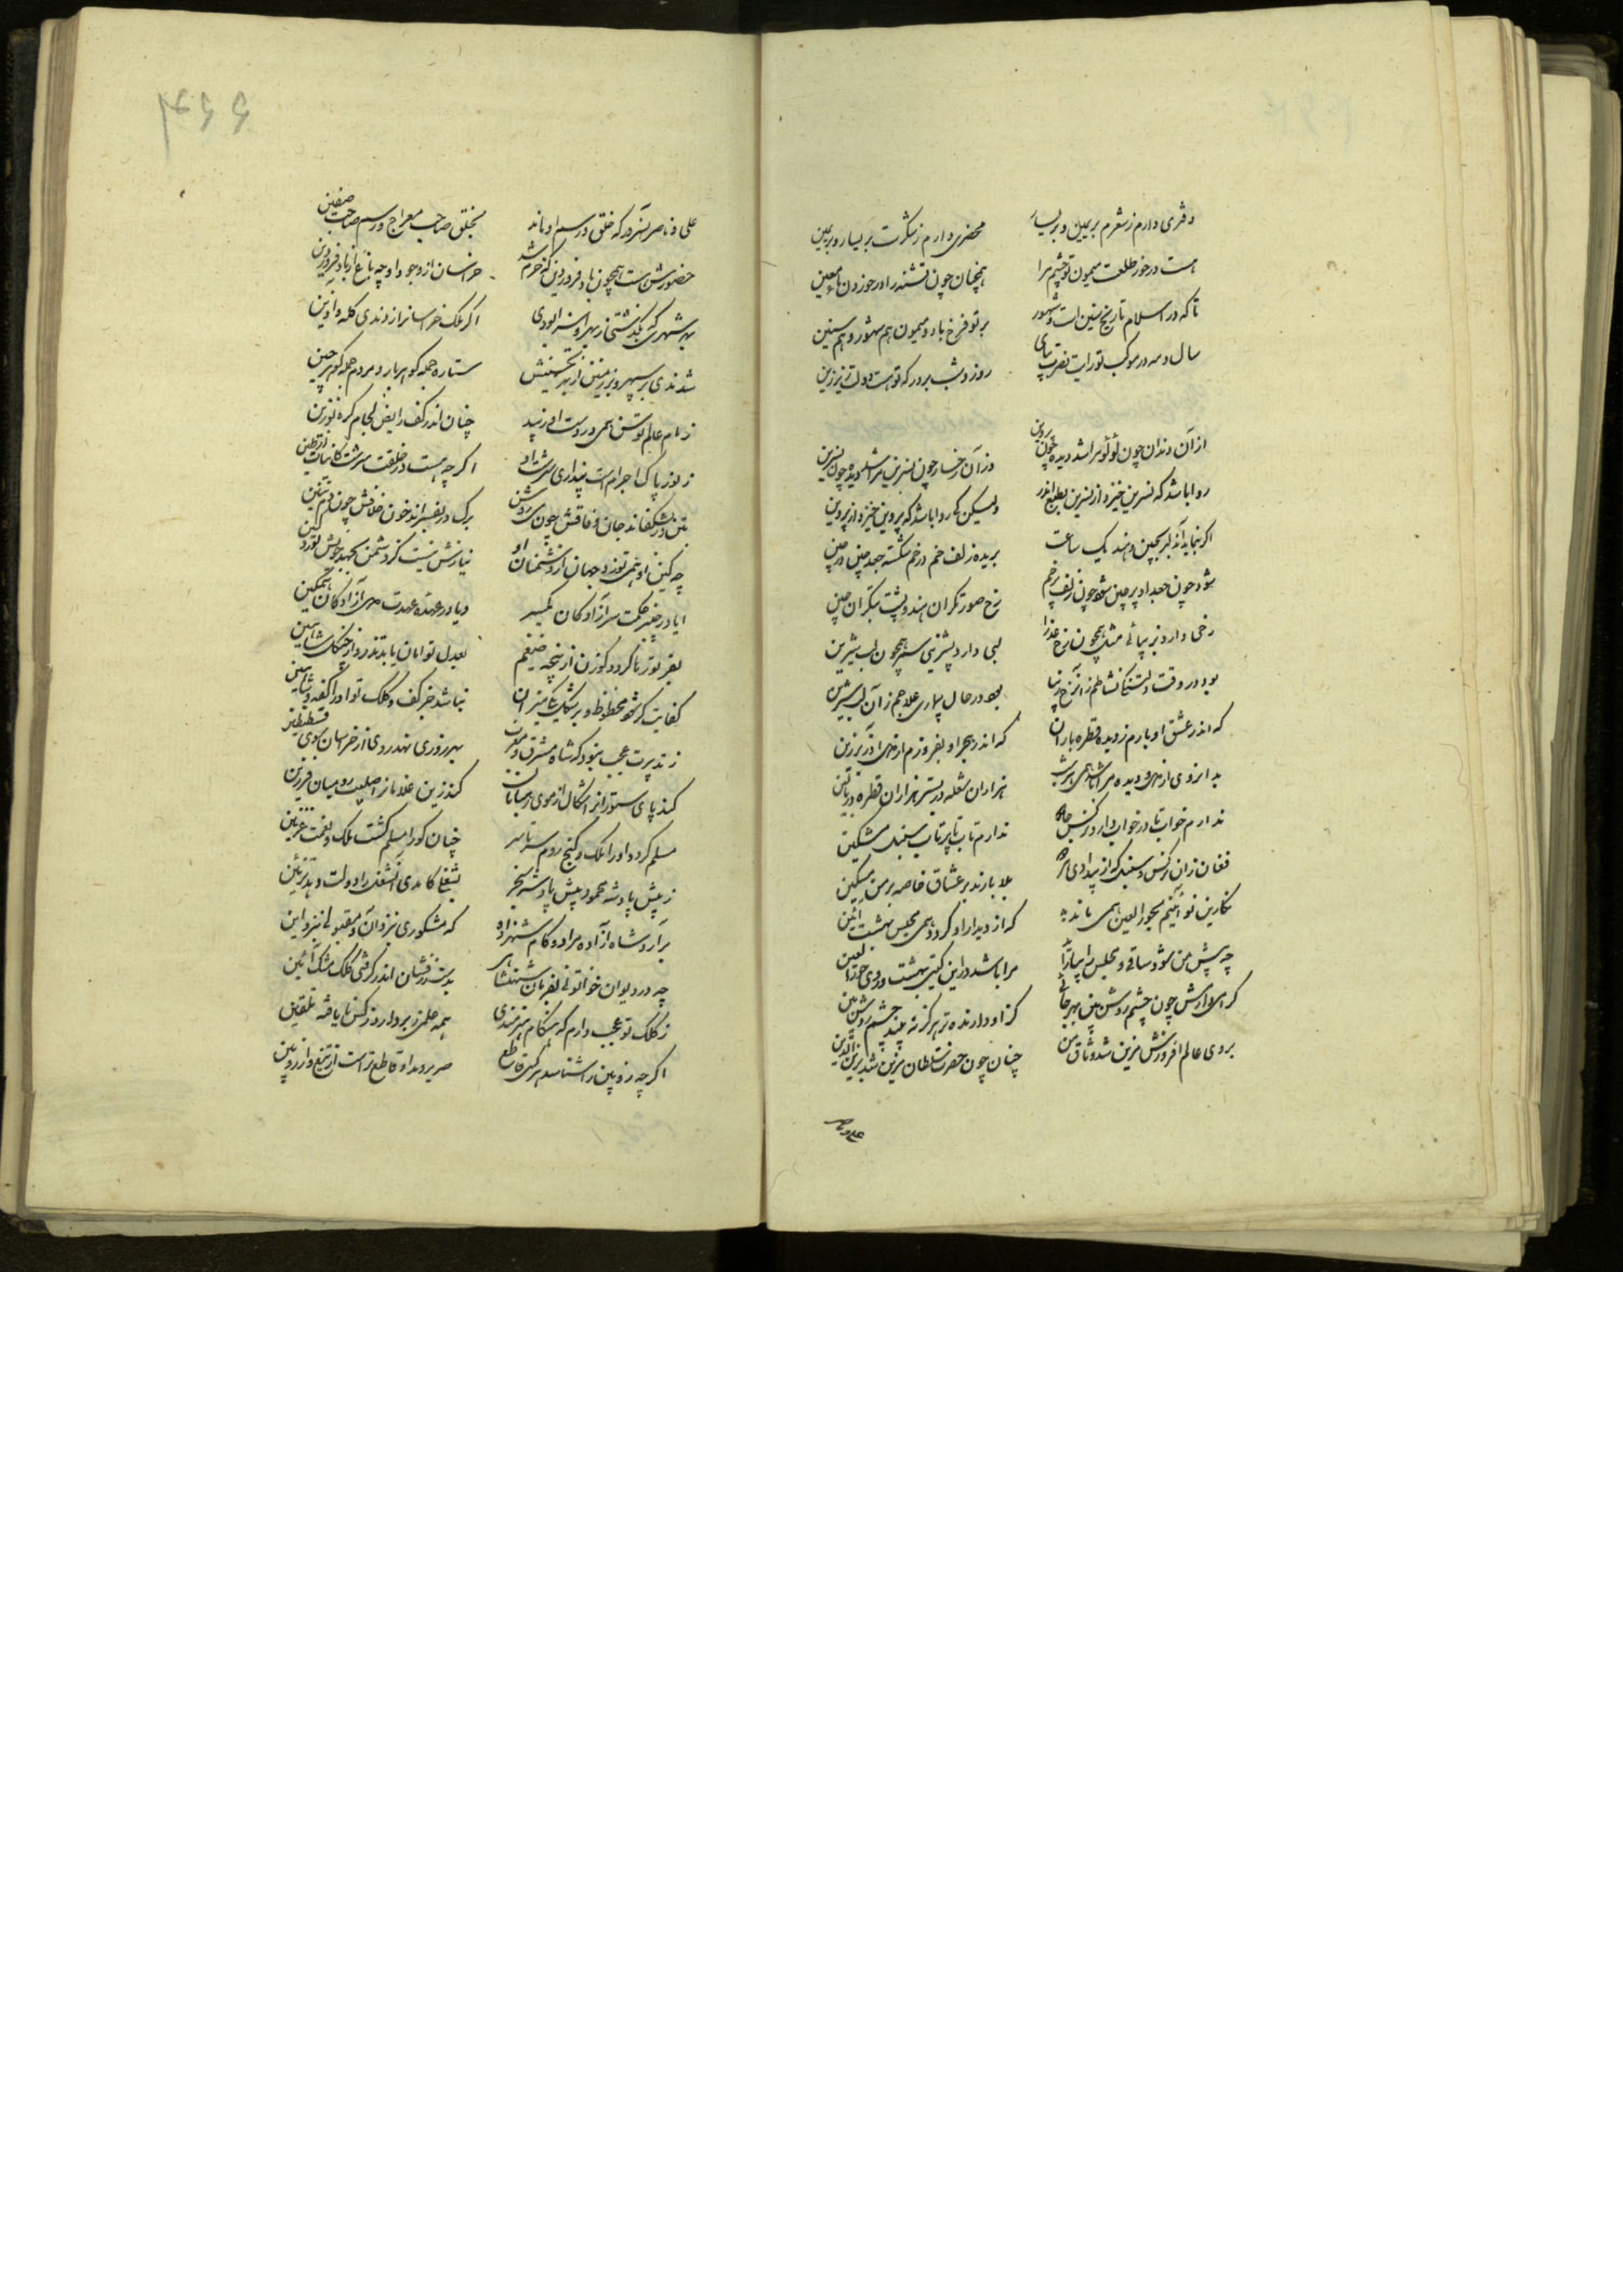 دفتری دارم ز شعرم بر یمین و بر یسار
محضری دارم ز شکرت بر یسار و بر یمین
هست در خور طلعت میمون تو چشم مرا
همچنان چون تشنه را در خور بود ماء معین
تا که در اسلام تاریخ سنین است و شهور
بر تو فرخ باد و میمون هم شهور و هم سنین
سال و مه در موکب تو رایت نصرت بپای
روز و شب بر درگه تو اسب دولت زیر زین
از آن دندان چون لؤلؤ مرا شد دیده چون پروین
وز آن رخسار چون نسرین مرا شد دیده چون نسرین
روا باشد که نسرین خیزد از نسرین بطبع اندر
ولیکن کی روا باشد که پروین خیزد از پروین
اگر بنماید آن دلبر بچین و هند یک ساعت
بریده زلف خم در خم شکسته جعد چین در چین
شود چون جعد او پر چین شود چون زلف پر خم
رخ صورتگران هند و پشت بتگران چین
رخی دارد بزیبائی همچون رخ عذرا
لبی دارد بشیرینی همچون لب شیرین
بود در وقت دلتنگی نشاطم زآن رخ زیبا
بود در حال بیماری علاجم زآن لب شیرین
که اندر عشق او بارم ز دیده قطره باران
که اندر هجر او بفروزم از دل آذر برزین
هزاران شعله در بستر هزاران قطره در بالین
ندارم خواب تا در خواب دارد نرگس جادو
ندارم تاب تا پرتاب سنبل مشکین
فغان زان نرگس و سنبل که از بیدادی
بلا بارند بر عشاق خاصه بر من مسکین
نگارین نو آئینم بحور العین همی ماند
که از دیدار او گردد همی مجلس بهشت آئین
چو پیش من شود ساقی و مجلس را بیاراید
مرا باشد در این گیتی بهشت و روی حور العین
گرامی دارمش چون چشم روشن بین بهر جائی
بروی عالم افروزش مزین شد وثاق من
چنان چون حضرت سلطان مزین شد بزین الدین
علی
۴۶۶
علی و ناصر آن سرور که خلق و رسم او ماند
بخلق صاحب معراج و رسم صاحب صفین
حضورش هست همچون باد فروردین کزو خرم شد
خراسان از وجود او چو باغ از باد فروردین
بهر شهری که بگذشتی ز بهر او
اگر ملک خراسان را زدندی کله و آذین
شدندی بر سپهر و بر زمین از بهر تحسینش
ستاره جمله گوهر بار و مردم جمله گوهر چین
زمام عالم توسن همی در دست او زیبد
چنان اندر کف رایض لجام کره توزین
ز نور پاک اجرام است پنداری سرشت او
اگر چه هست در خلقت سرشت کائنات از طین
بتن در بشکفاند جان وفاقش چون می روشن
برگ در بفسراند خون خلافش چون دم تنین
چو کین او همی توزد جهان از دشمنان او
نیازش نیست کز دشمن بجهد خویش توزد کین
ایا در چنبر حکمت سر آزادگان یکسر
و یا در عهده عهدت دل آزادگان همگین
بفر تو رها گردد گوزن از پنجه ضیغم
بعدل تو امان یابد تذرو از چنگل شاهین
نباشد جز کف و کلک تو او را کفه و شاهین
ز تدبیرت عجب نبود که شاه مشرق و مغرب
بپیروزی نهد روی از خراسان سوی قسطنطین
کند پای ستوران را شکال از موی رهبانان
کند زین غلامان را صلیب رومیان قرزین
مسلم گردد او را ملک و گنج روم سرتاسر
چنان کو را مسلم گشت ملک و نعمت غزنین
ز پیش پادشه محمود پیش پادشه سنجر
بشغلی کآمدی آن شغل را دولت دهد تزئین
برآری شاه آزاده مراد و کام شهزاده
که مشکوری بنزد آن و مقبولی بنزد این
چو در دیوان خواتونی بفرمان شهنشاهی
بدست درفشان اندر گرفتی کلک مشک آئین
ز کلک تو عجب دارم که هنگام هنرمندی
همه علمی ز بر دارد ز کس نایافته تلقین
اگر چه زوبین را شناسد هر کسی قاطع
صریر و مد او قاطع‌تر است از تیغ و از زوبین